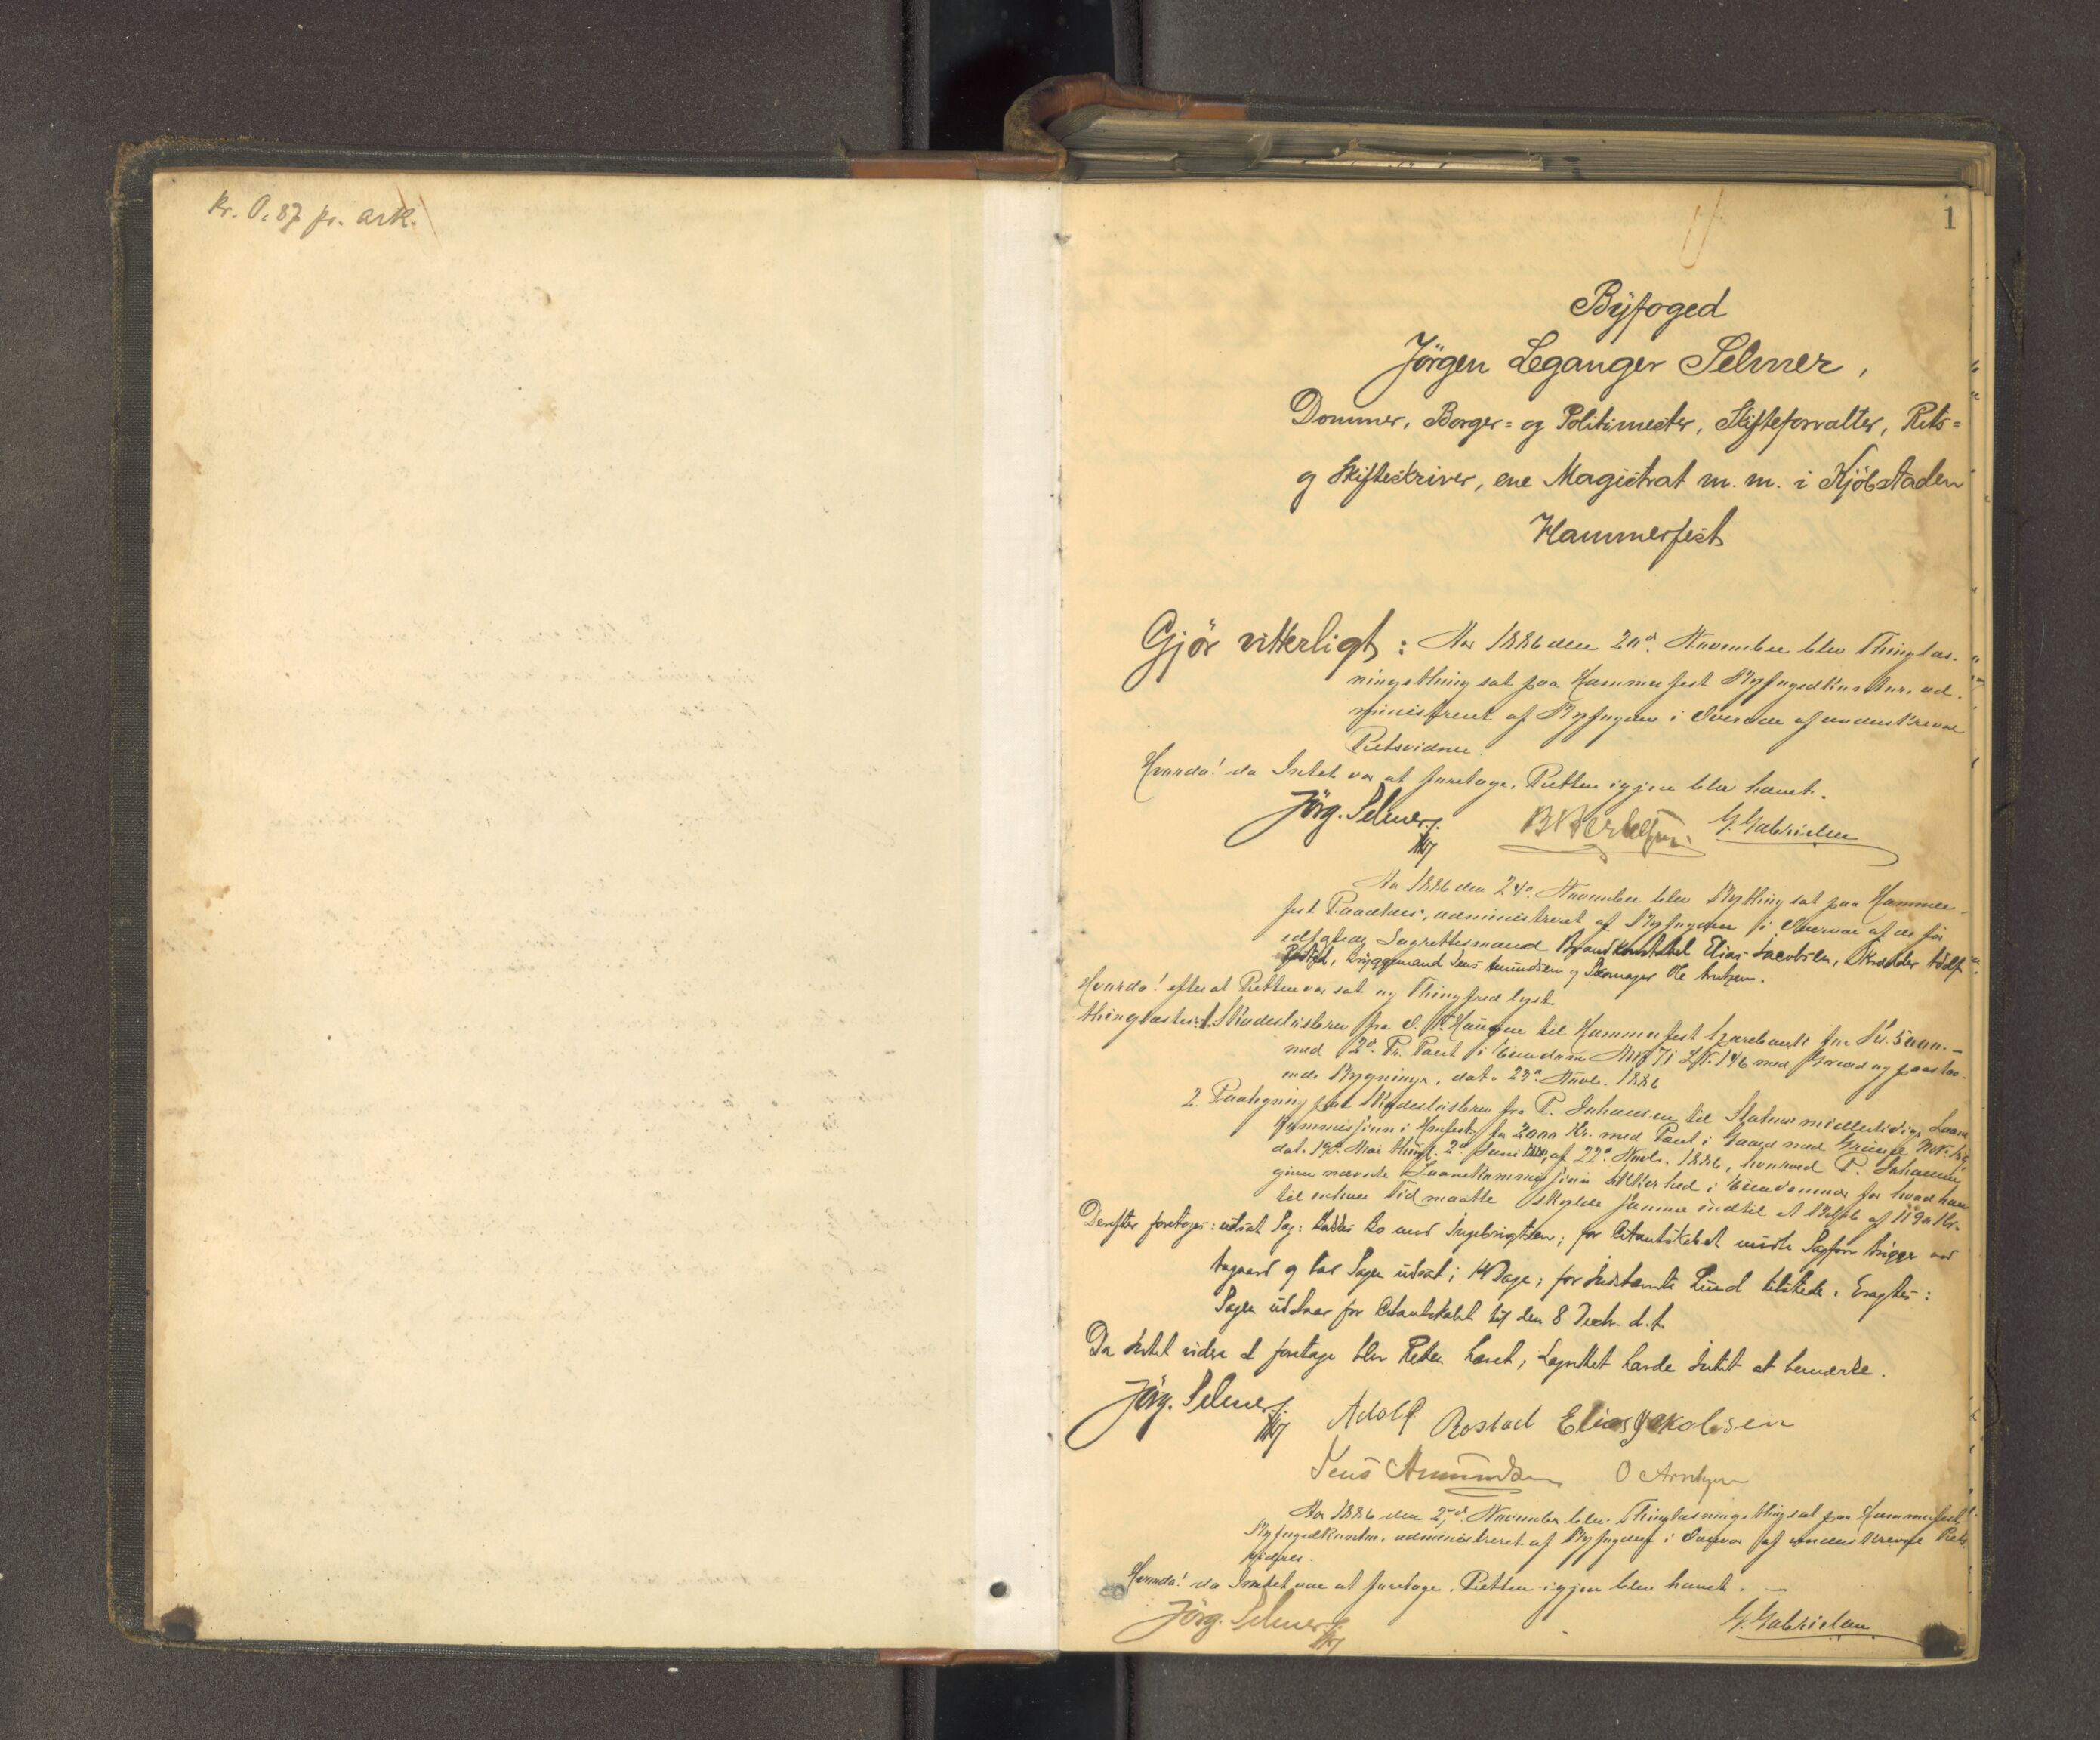 Kr. 0,87 pr. ark.
1
Byfoged
Jörgen Leganger Selmer,
Dommer, Borger= og Politimester, Skifteforvalter, Rets=
og Skifteskriver, ene Magistrat m. m. i Kjöbstaden
Hammerfest
Gjör vitterligt: Aar 1886 den 20de November blev Thinglæs-
ningsthing sat paa Hammerfest Byfogedkontor, ad-
ministreret af Byfogden i Overvær af underskrevne
Retsvidner.
Hvorda! da Intet var at foretage, Retten igjen blev hævet.
Jörg. Selmer G. Gabrielsen
Aar 1886 den 24de November blev Bything sat paa Hammer-
fest Raadhus, administreret af Byfogden i Overvær af de för
edfæstede Lagrettesmænd Brandkonstabel Elias Jacobsen, Skrædder Adolf
Rostad, Bryggemand Jens Amundsen og Skomager Ole Arntzen.
Hvorda! efter at Retten var sat og Thingfred lyst
thinglæstes: 1. Skadeslösbrev fra O. Haugen til Hammerfest Sparebank for Kr. 5000.-
med 2d. Pr. Pant i Eiendom No 71 L.N. 146 med Grund og paastaa-
ende Bygninger, dat. 23de Novb. 1886
2. Paategning paa Skadeslösbrev fra P. Johansen til Statens midlertidige Laane
kommission i Hmfest for 2000 Kr. med Pant i Gaard med Grund
dat. 19de Mai thingl. 2de Juni af 22de Novb. 1886, hvorved P. Johansen
giver nævnte Laanekommission Sikkerhed i Eiendommen for hvad han
til enhver Tid maatte skylde samme indtil et Belöb af Kr.
Derefter foretoges: udsat Sag: Co mod Ingebrigtsen; for Citantskabet mödte Sagförer Brigge ved
og bad Sagen udsat i 14 Dage; for Indstævnte Lund tilstede. Eragtes:
Sagen udstaar for Citantskabet til den 8 Decbr. d. A.
Da Intet videre at foretage blev Retten hævet; Lagrettet havde Intet at bemærke.
Jörg. Selmer Adolf Rostad Elias Jakobsen
Jens Amundsen O Arntzen
Aar 1886 den November blev Thinglæsningsthing sat paa Hammerfest
Byfogedkontor, administreret af Byfogden i Overvær af underskrevne Rets
vidner.
Hvorda! da Intet var at foretage, Retten igjen blev hævet. -
Jörg. Selmer G. Gabrielsen